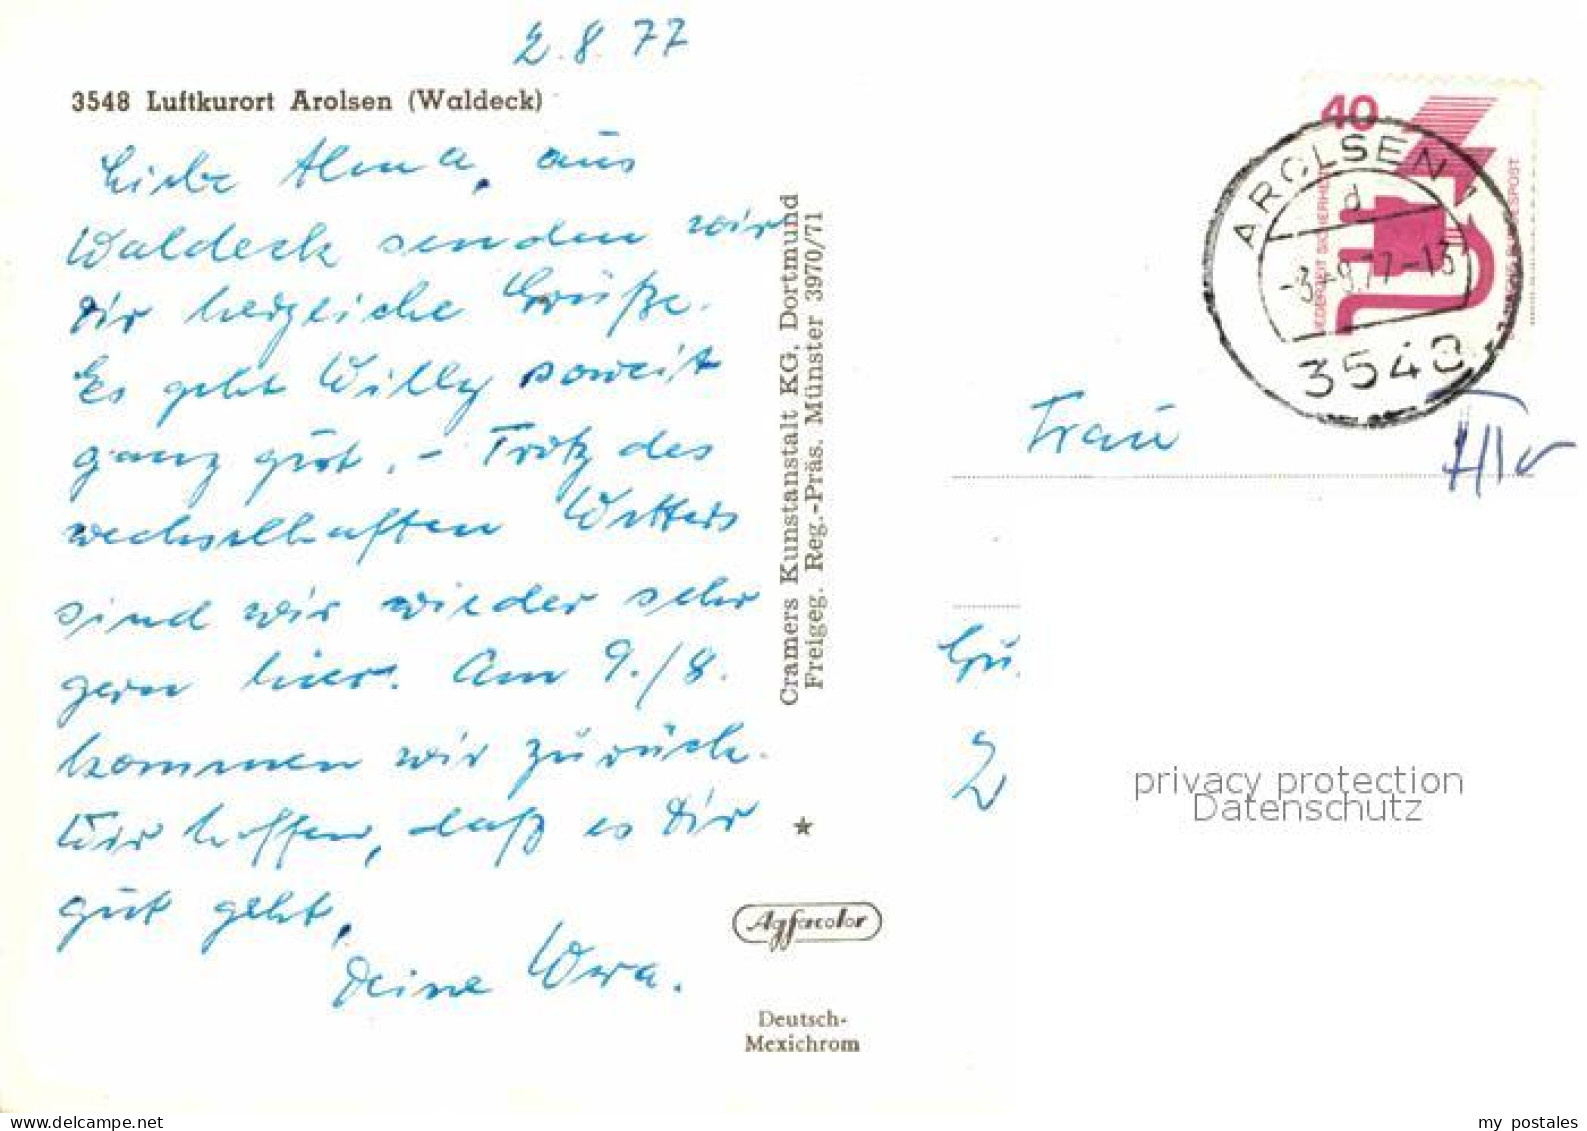 2.8.77
3548 Luftkurort Arolsen (Waldeck)
Liebe Alma, aus
Waldeck senden wir
Dir herzliche Grüße.
Es geht Willy soweit
ganz gut. - Trotz des
wechselhaften Wetters
sind wir wieder sehr
gern hier. Am 9./8.
kommen wir zurück.
Wir hoffen, daß es Dir
gut geht.
Deine
Cramers Kunstanstalt KG, Dortmund
Freigeg. Reg.-Präs. Münster 3970/71
Agfacolor
Deutsch-
Mexichrom
40
JEDERZEIT SICHERHEIT
AROLSEN 1
d
3548
Frau
privacy protection
Datenschutz
my postales